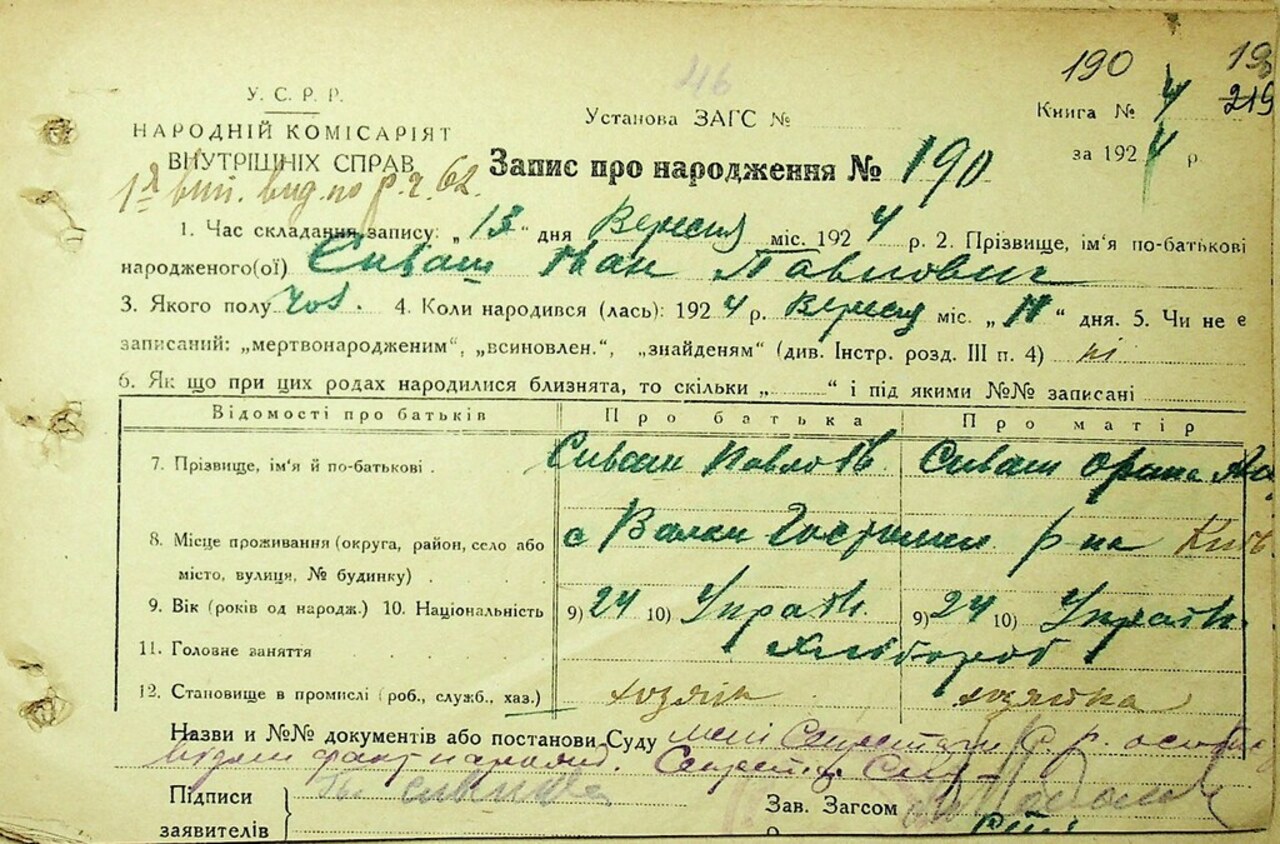 190 19
219
46
У. С. Р. Р.
НАРОДНІЙ КОМІСАРІЯТ
ВНУТРІШНІХ СПРАВ
Установа ЗАГС №
Книга № 4
за 1924 р.
Запис про народження № 190
вид. по р. 62.
1. Час складання запису: „13“ дня Вересня міс. 1924 р. 2. Прізвище, ім'я по-батькові
народженого(ої) Сиваш Іван Павлович
3. Якого полу чол. 4. Коли народився (лась): 1924 р. Вересня міс. „11“ дня. 5. Чи не є
записаний: „мертвонародженим“, „всиновлен.“, „знайденям“ (див. Інстр. розд. III п. 4) ні
6. Як що при цих родах народилися близнята, то скільки „ “ і під якими №№ записані
Відомості про батьків Про батька Про матір
7. Прізвище, ім'я й по-батькові . Сиваш Павло Ів. Сиваш
8. Місце проживання (округа, район, село або с Валки р-на
місто, вулиця, № будинку) . .
9. Вік (років од народж.) 10. Національність 9) 24 10) Украін. 9) 24 10) Украін.
11. Головне заняття . . . Хлібороб
12. Становище в промислі (роб., служб., хаз.) хозяін хозяйка
Назви и №№ документів або постанови Суду мені
відом факт народж.
Підписи
заявителів
Зав. Загсом